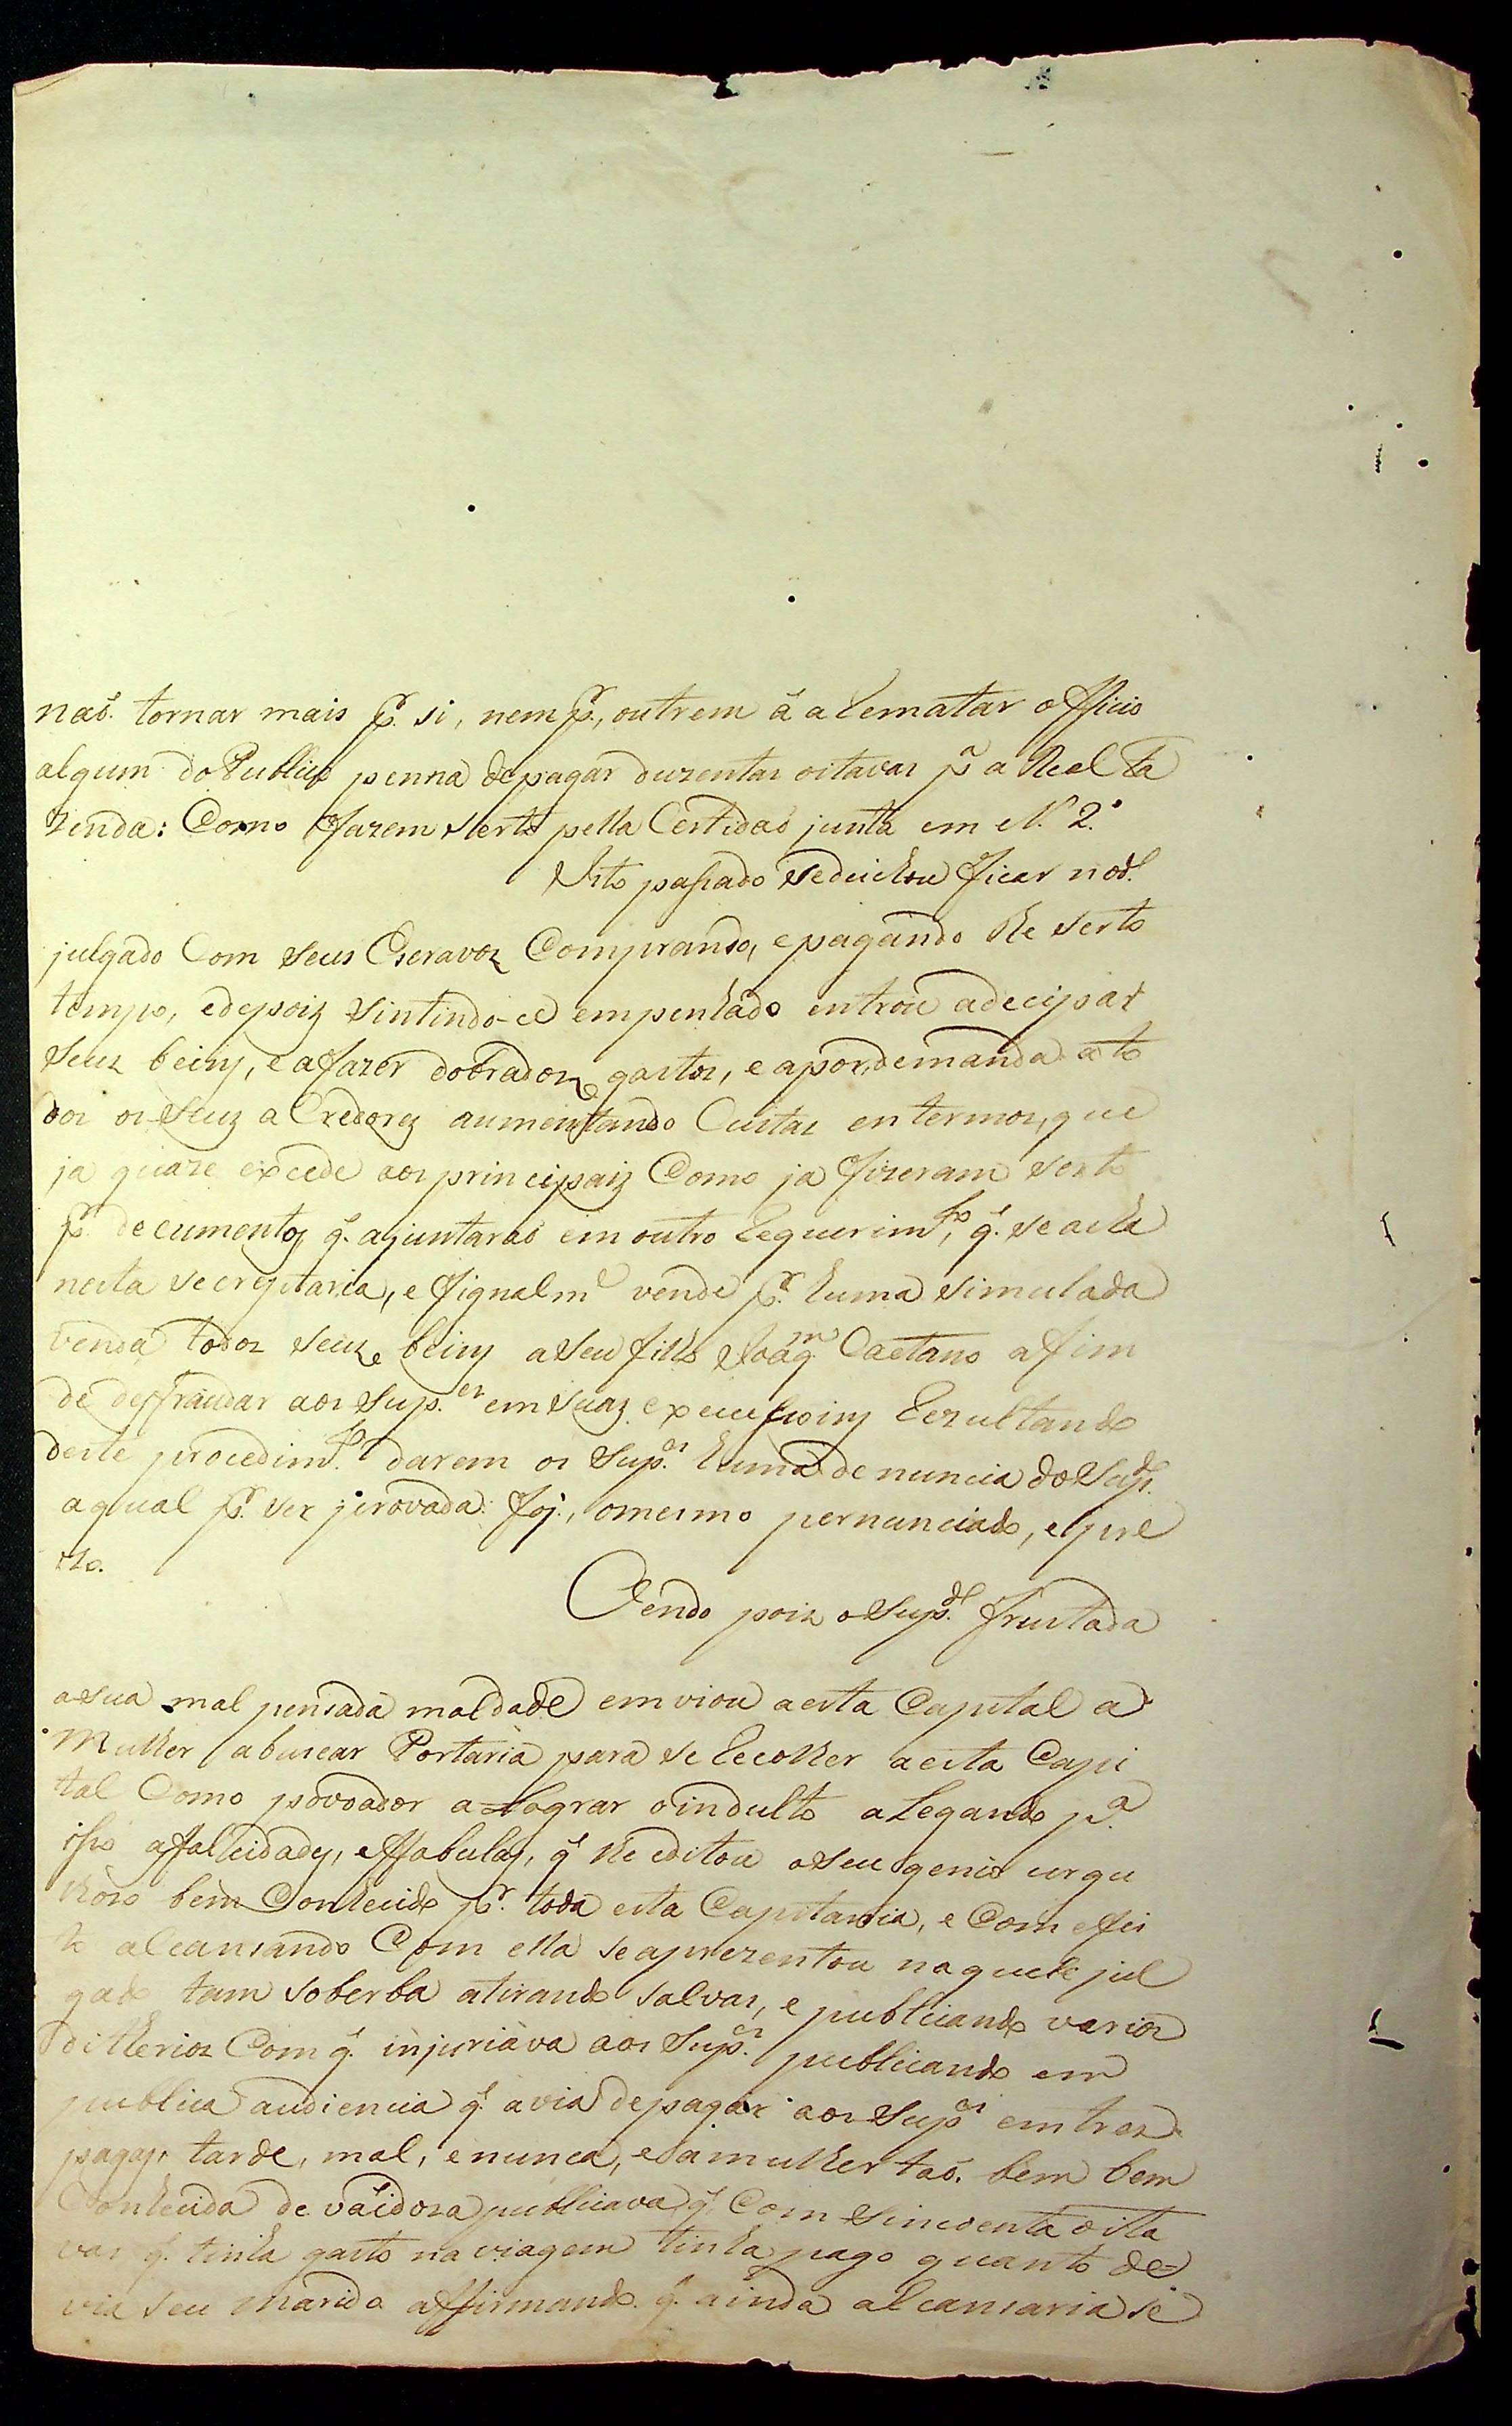 naõ. tornar mais pr. si, nem pr., outrem á a Rematar officio
algum do Publico penna de pagar duzentas oitavas pa. a Real Fa
zenda: Como fazem serto pella Certidaõ junta em N. 2.º
Isto passado se deichou ficar no dº.
julgado Com seus Escravos Comprando, e pagando lhe serto
tempo, e depois sintindo-ce empenhado entrou a decipar
seus beins, e a fazer dobrados gastos, e a por demanda a to
dos os seus a Credores aumentando Custas en termos, que
ja quaze excede aos principais Como ja fizeram serto
pr. decumentos q. ajuntaraõ em outro Requerimto., q. se acha
nesta secretaria, e fignalme. vende pr. huma simulada
venda todos seus beins a seu filho Joaqm. Caetano a fim
de deffraudar aos Supes. em suas execussoins Rezultando
deste procedimto. darem os Supes. huma denuncia do Supdo.
a qual pr. ser provada: foj., o mesmo pernunciado, e pre
zo.
Vendo pois o Supdo. frustada
a sua mal pensada maldade emviou a esta Capital a
Mulher a buscar Portaria para se Recolher a esta Capi
tal Como povoador a Lograr o indulto aLegando pa.
isso as falcidades, e ffabulas, q. lhe editou o seu genio urgu
lhozo bem Conhecido pr. toda esta Capitania, e Com efei
to alcansando Com ella se aprezentou naquele jul
gado tam soberba atirando salvas, e publicando varios
ditterios Com q. injuriava aos Supes. publicando em
publica audiencia q. avia de pagar aos Supes. em tres
pagas tarde, mal, e nunca, e a mulher taõ. bem bem
Conhecida de vaidosa publicava q. Com sincoenta oita
vas q. tinha gasto na viagem tinha pago quanto de=
via seu marido affirmando. q. ainda alcansaria se